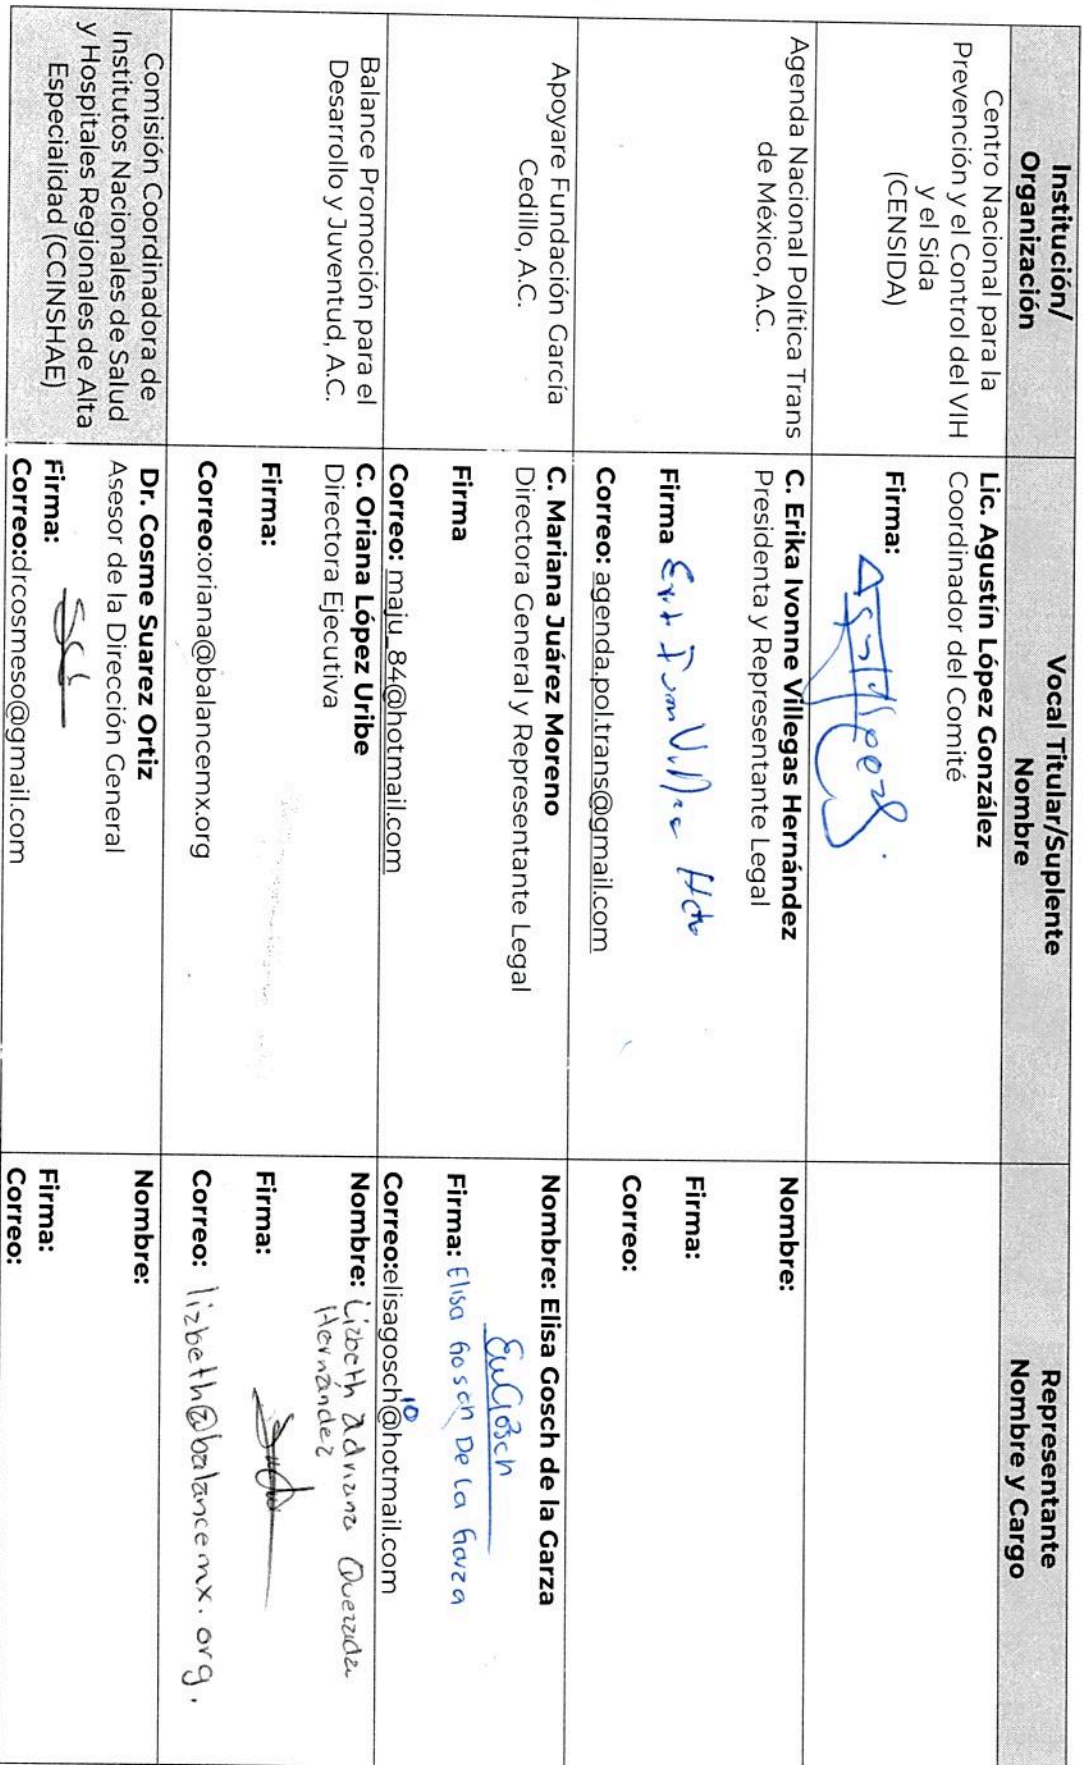 Institución/
Organización
Vocal Titular/Suplente
Nombre
Representante
Nombre y Cargo
Centro Nacional para la
Prevención y el Control del VIH
y el Sida
(CENSIDA)
Lic. Agustín López González
Coordinador del Comité
Firma:
Agenda Nacional Política Trans
de México, A.C.
C. Erika Ivonne Villegas Hernández
Presidenta y Representante Legal
Firma
Correo: agenda.pol.trans@gmail.com
Nombre:
Firma:
Correo:
Apoyare Fundación García
Cedillo, A.C.
C. Mariana Juárez Moreno
Directora General y Representante Legal
Firma
Correo: maju_84@hotmail.com
Nombre: Elisa Gosch de la Garza
Firma: Elisa Gosch De la Garza
Correo:elisagosch10@hotmail.com
Balance Promoción para el
Desarrollo y Juventud, A.C.
C. Oriana López Uribe
Directora Ejecutiva
Firma:
Correo:oriana@balancemx.org
Nombre: Lizbeth Adriana Quezada
Hernández
Firma:
Correo: lizbeth@balancemx.org.
Comisión Coordinadora de
Institutos Nacionales de Salud
y Hospitales Regionales de Alta
Especialidad (CCINSHAE)
Dr. Cosme Suarez Ortiz
Asesor de la Dirección General
Firma:
Correo:drcosmeso@gmail.com
Nombre:
Firma:
Correo: